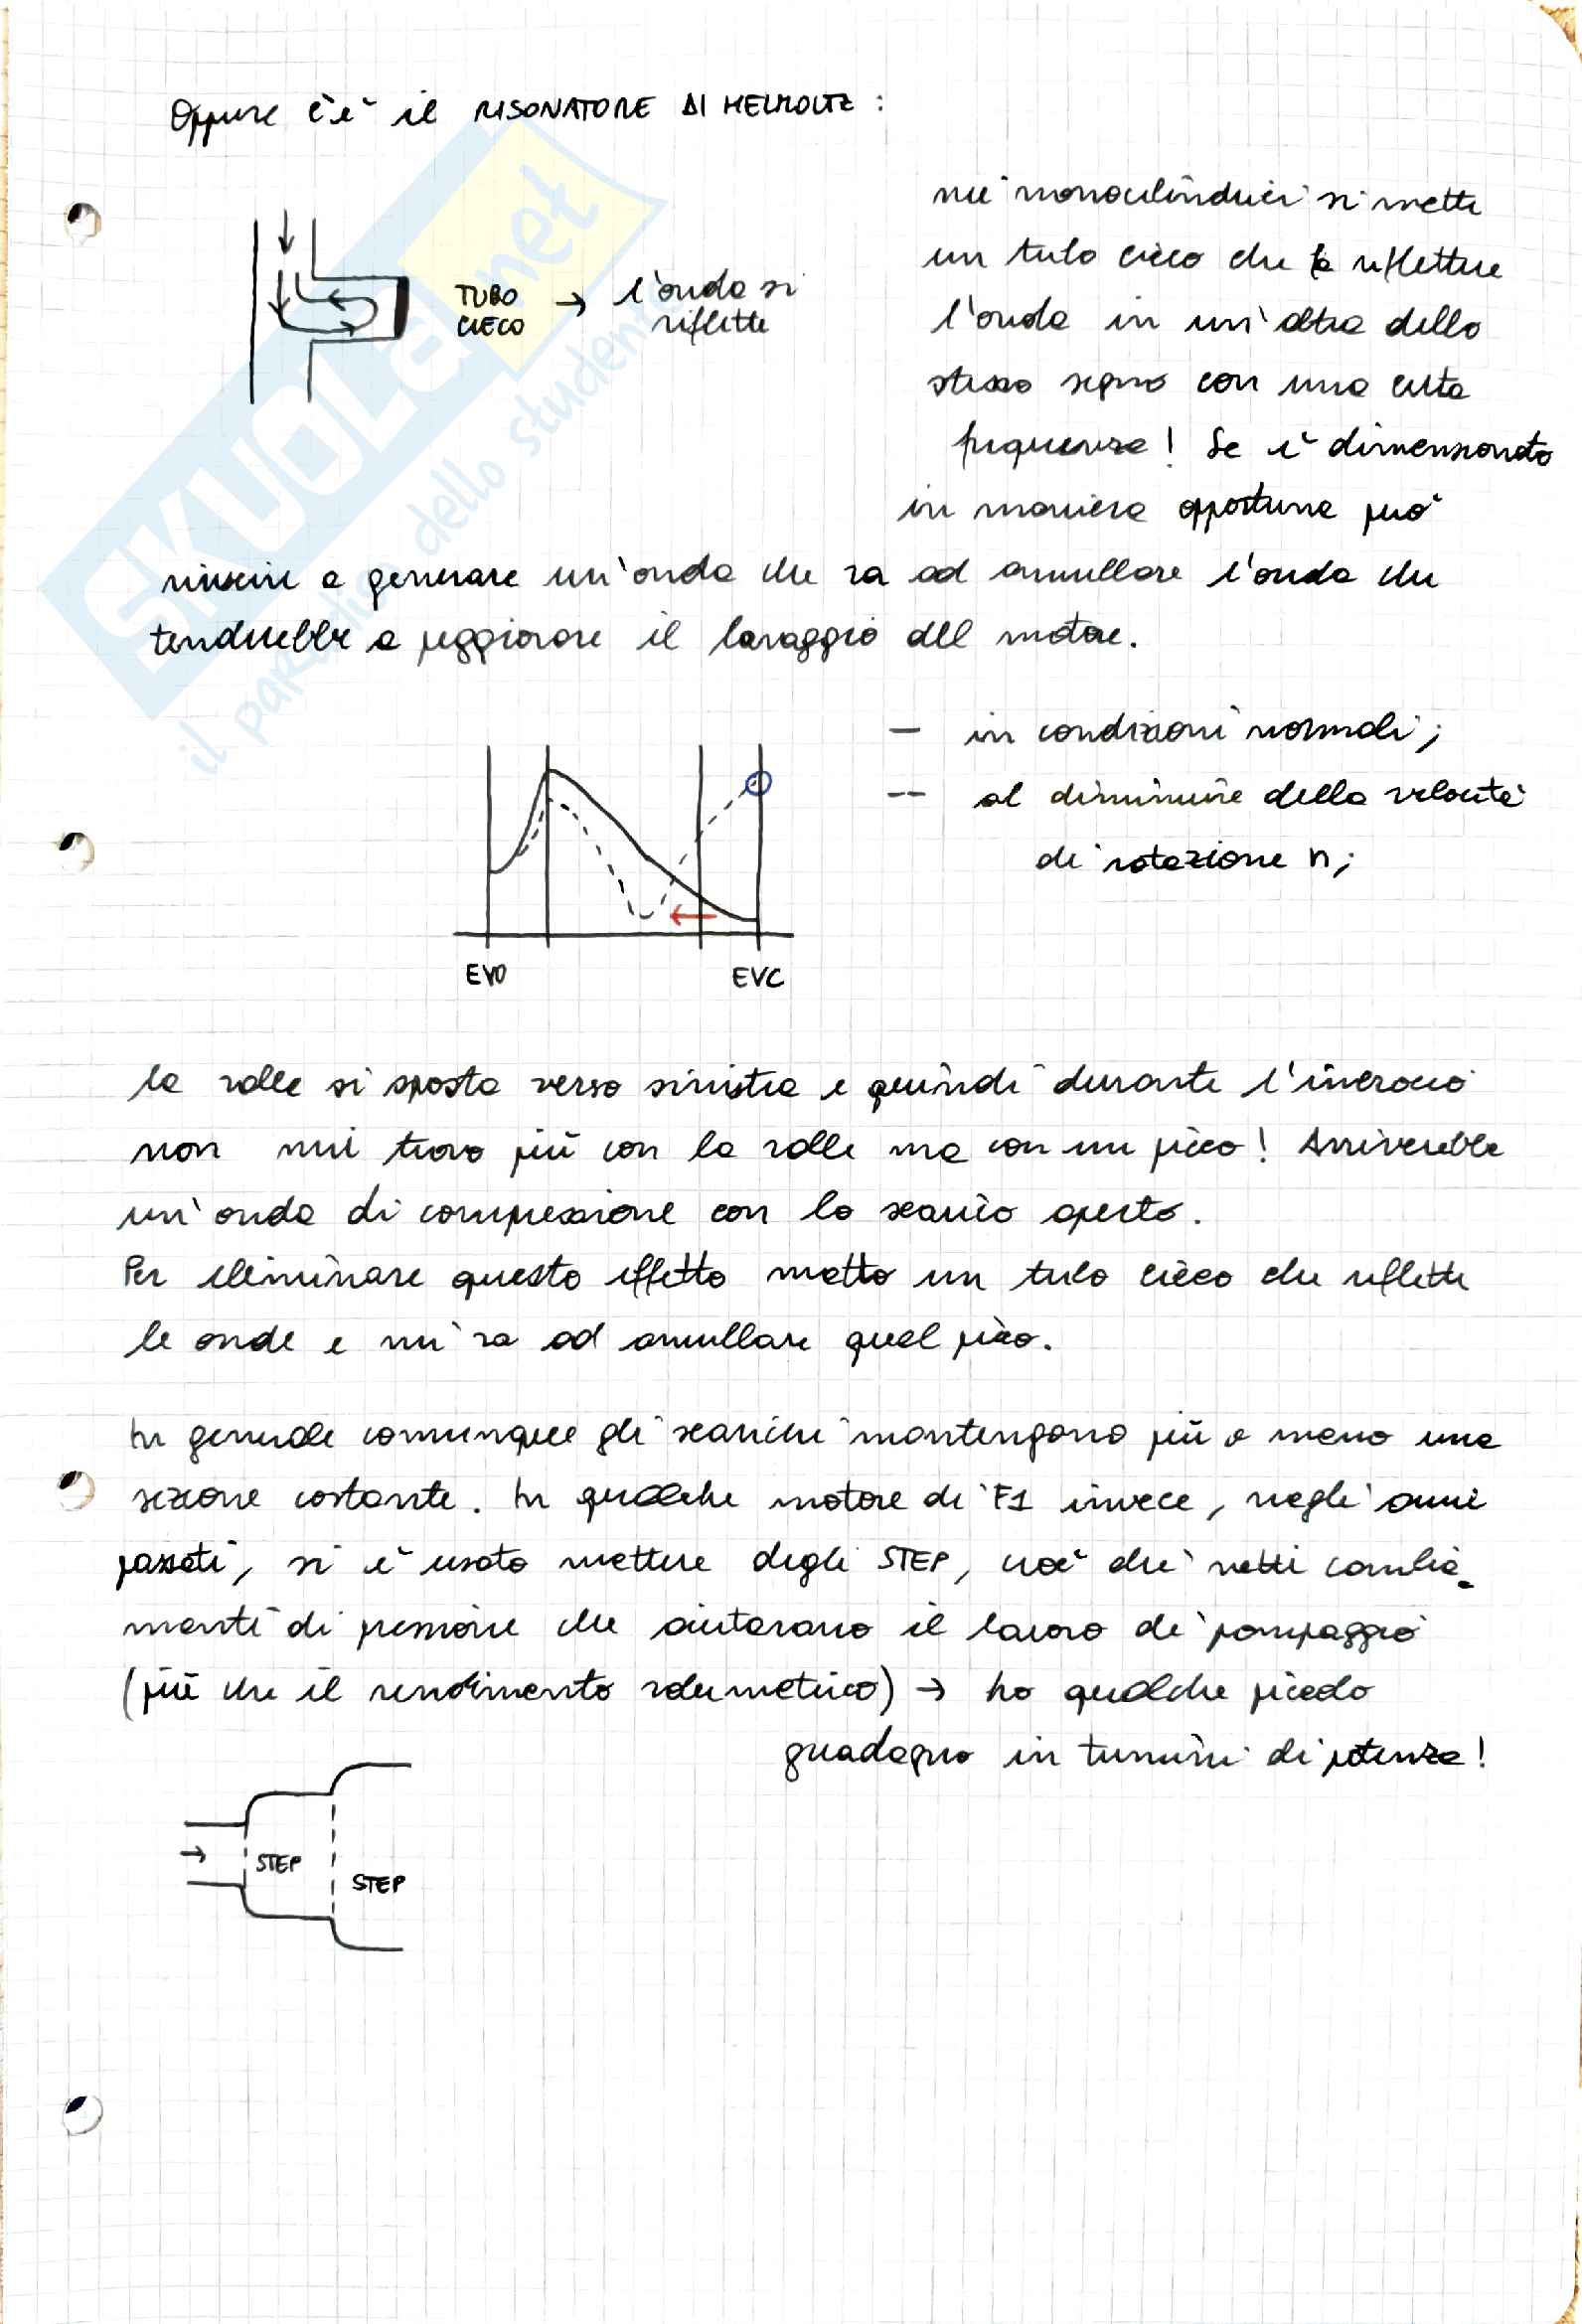 Oppure c'è il RISONATORE DI HELMOLTZ :
nei monocilindrici si mette
un tubo cieco che fa riflettere
l'onda in un'altra dello
stesso segno con una certa
frequenza! Se è dimensionato
in maniera opportuna può
riuscire a generare un'onda che va ad annullare l'onda che
tenderebbe a peggiorare il lavaggio del motore.
TUBO CIECO → l'onda si riflette
— in condizioni normali;
-- al diminuire della velocità
di rotazione n;
EVO
EVC
la valle si sposta verso sinistra e quindi durante l'incrocio
non mi trovo più con la valle ma con un picco! Arriverebbe
un'onda di compressione con lo scarico aperto.
Per eliminare questo effetto metto un tubo cieco che riflette
le onde e mi va ad annullare quel picco.
In generale comunque gli scarichi mantengono più o meno una
sezione costante. In qualche motore di F1 invece, negli anni
passati, si è usato mettere degli STEP, cioè dei netti cambia-
menti di pressione che aiutavano il lavoro di pompaggio
(più che il rendimento volumetrico) → ho qualche piccolo
guadagno in termini di potenza!
STEP
STEP
SKUOLA.net
il paradiso dello studente